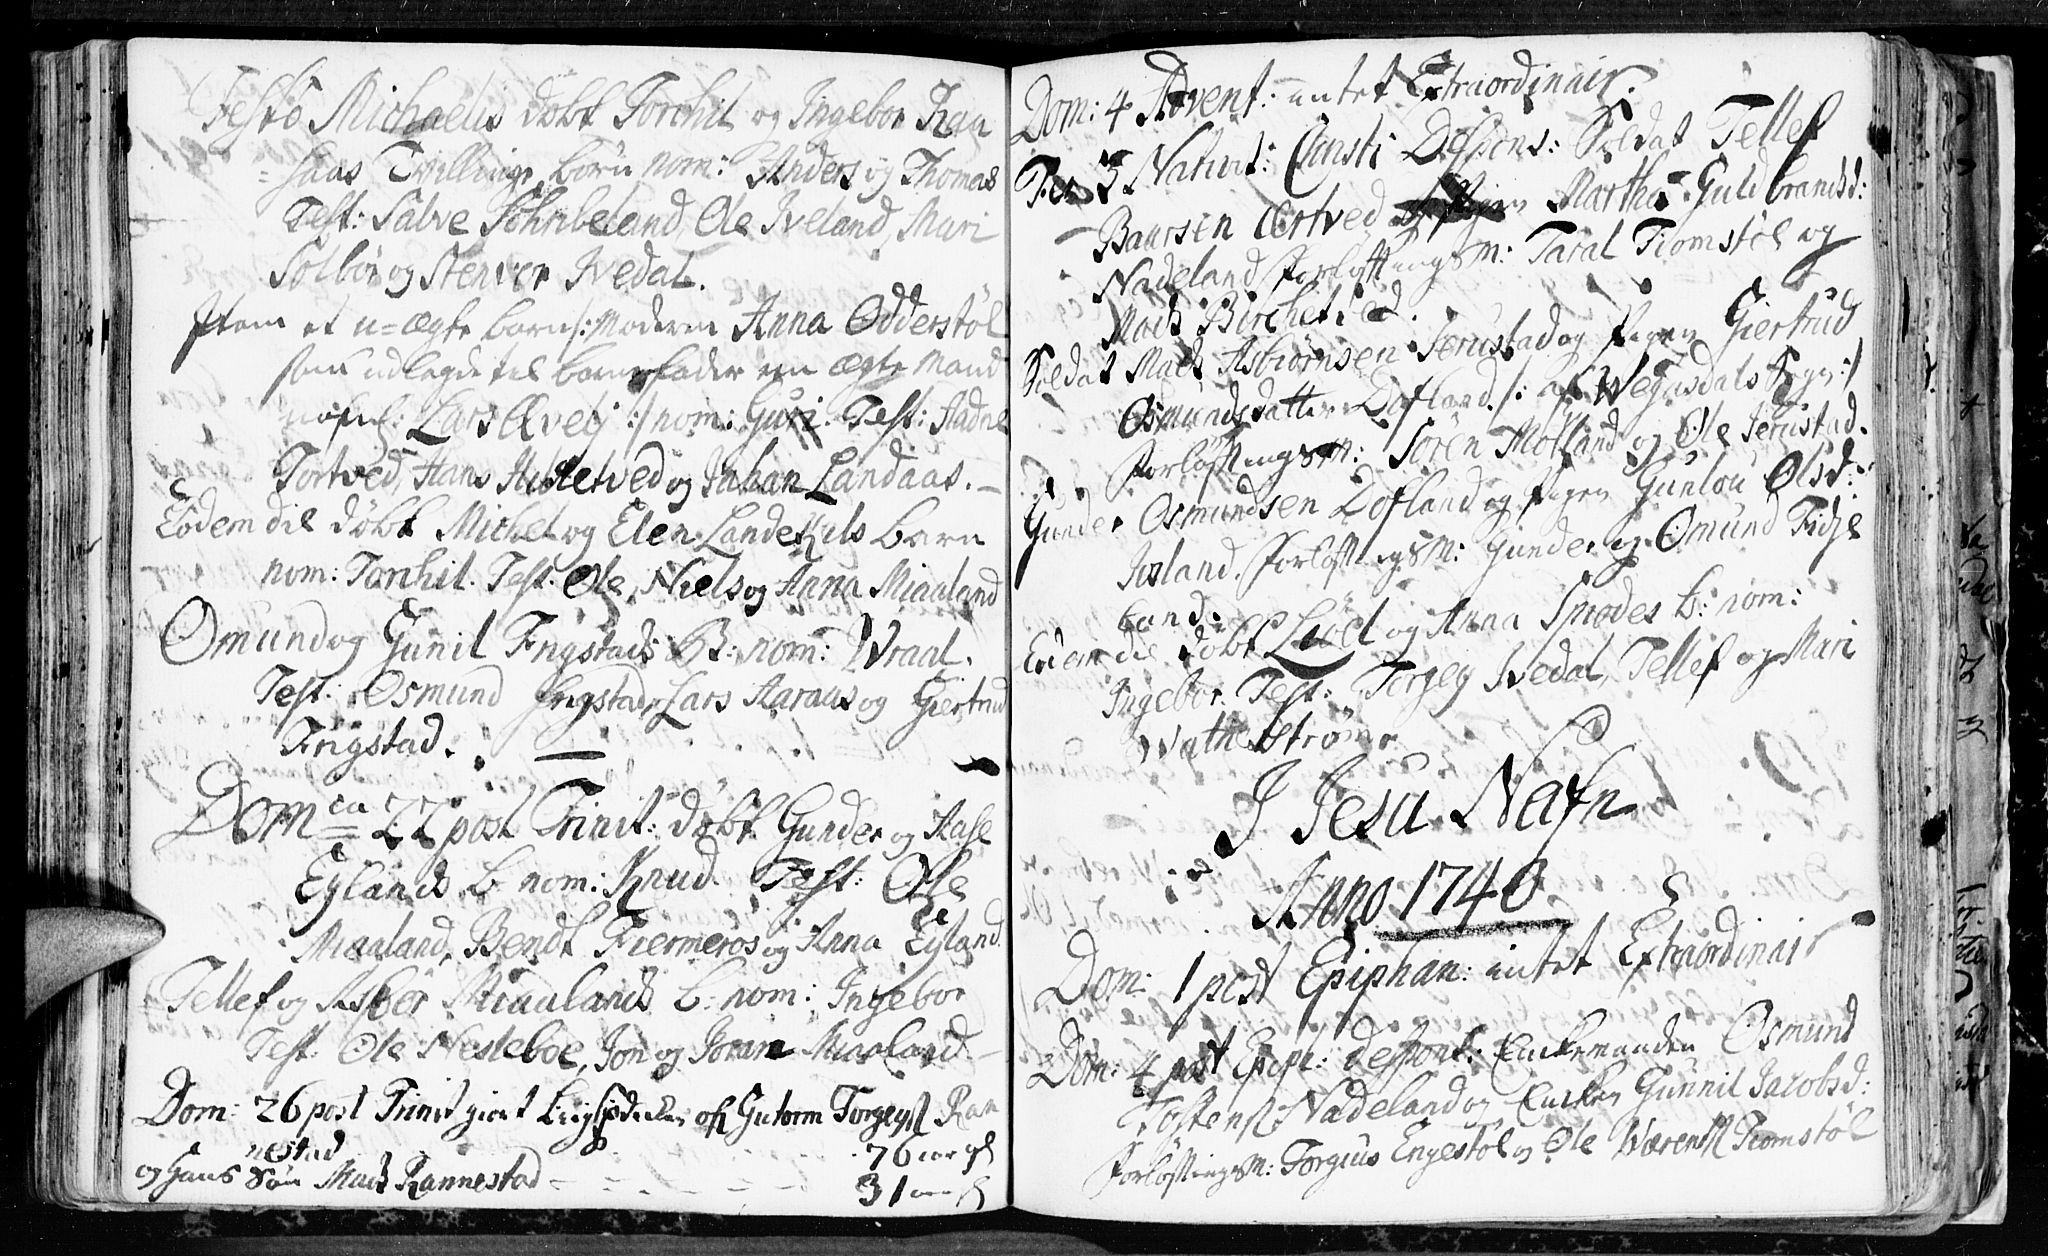 Festo Michaelis døbt Torchil og Ingebor Raa
=saas Tvillinge børn nom: Anders og Thomas
Test: Salve Ole Iveland, Mari
Solbør og Stenver Ivedal.
Item et u=ægte barn /: Moderen Anna Odderstøl
som udlegde til barnefader en ægte Mand
Lars :/ nom: Guri. Test: Aadne
Tortved, Hans og Johan Landaas.
Eodem die døbt Michel og Elen Landekils barn
nom: Torchil. Test: Ole, Niels og Anna Miaaland
Omund og Gunil Frigstads B: nom: Wraal.
Test: Osmund Frigstad, Lars Aaraas og Giertrud
Frigstad.
Dom ca 22 post Trinit: døbt Gunder og Aase
Eylands b: nom: Knud. Test: Ole
Miaaland, Bendt Fiermeros og Anna Eyland.
Tellef og Asbør Miaalands b: nom: Ingebor
Test: Ole Nesteboe, Jon og Joran Miaaland.
Dom: 26 post Trinit giort Liigprædiken ofr Gutorm Torgeys Ran
nestad 76 aar gl
og Hans Søn Mads Rannestad 31 aar gl
Dom: 4 Advent: intet Extraordinair.
Fer 3 Nativit: Christi Despons: Soldat Tellef
Baarsen Ærtved Pigen Martha Guldbrandsd:
Nadeland Forløftningsm: Taral Tiomstøl og
Mads Birchetved.
Soldat Mads Asbiørnsen Jerustad og Pigen Giertrud
Osmundsdatter Dofland /: af Wegusdals Sogn :/
Forløftningsm: Søren Mosland og Ole Jerustad.
Gunder Osmundsen Dofland og Pigen Gunlou Olsd:
Iisland. Forløftningsm: Gunder og Omund Fidje
land.
Eodem die døbt Liøel og Anna Snodes b: nom:
Ingebor. Test: Torgey Ivedal, Tellef og Mari
Wathestrøm
I Jesu Nafn
Anno 1740
Dom: 1 post Epiphan: intet Extraordinair
Dom: 4 post Epiph: Despons: Enkemanden Osmund
Tostens: Nadeland og Enken Gunnil Jacobsd:
Forløftningsm: Torgius Engestøl og Ole Wærens: Tiomstøl